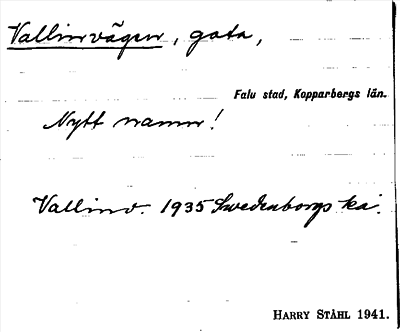 Vallinvägen, gata,
Falu stad, Kopparbergs län.
Nytt namn!
Vallinv. 1935 Swedenborgs ka.
HARRY STÅHL 1941.